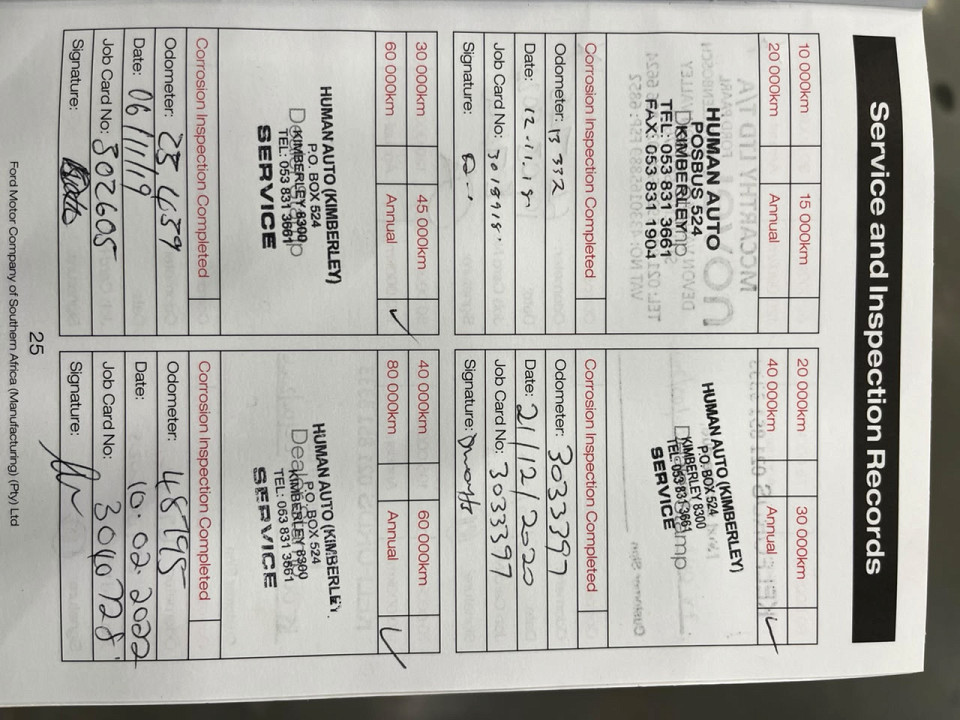 Service and Inspection Records
10 000km 15 000km
20 000km Annual
HUMAN AUTO
POSBUS 524
KIMBERLEY
TEL: 053 831 3661
FAX: 053 831 1904
Corrosion Inspection Completed
Odometer: 13 332
Date: 12.11.18
Job Card No: 3018918
Signature:
20 000km 30 000km
40 000km Annual ✓
HUMAN AUTO (KIMBERLEY)
P.O. BOX 524
KIMBERLEY 8300
TEL: 053 831 3661
SERVICE
Corrosion Inspection Completed
Odometer: 3033397
Date: 21/12/2020
Job Card No: 3033397
Signature:
30 000km 45 000km
60 000km Annual ✓
HUMAN AUTO (KIMBERLEY)
P.O. BOX 524
KIMBERLEY 8300
TEL: 053 831 3661
SERVICE
Corrosion Inspection Completed
Odometer: 25,439
Date: 06/11/19
Job Card No: 3026605
Signature:
40 000km 60 000km
80 000km Annual ✓
HUMAN AUTO (KIMBERLEY.
P.O. BOX 524
KIMBERLEY 8300
TEL: 053 831 3661
SERVICE
Corrosion Inspection Completed
Odometer: 48795
Date: 10.02.2022
Job Card No: 3040728
Signature:
25
Ford Motor Company of Southern Africa (Manufacturing) (Pty) Ltd